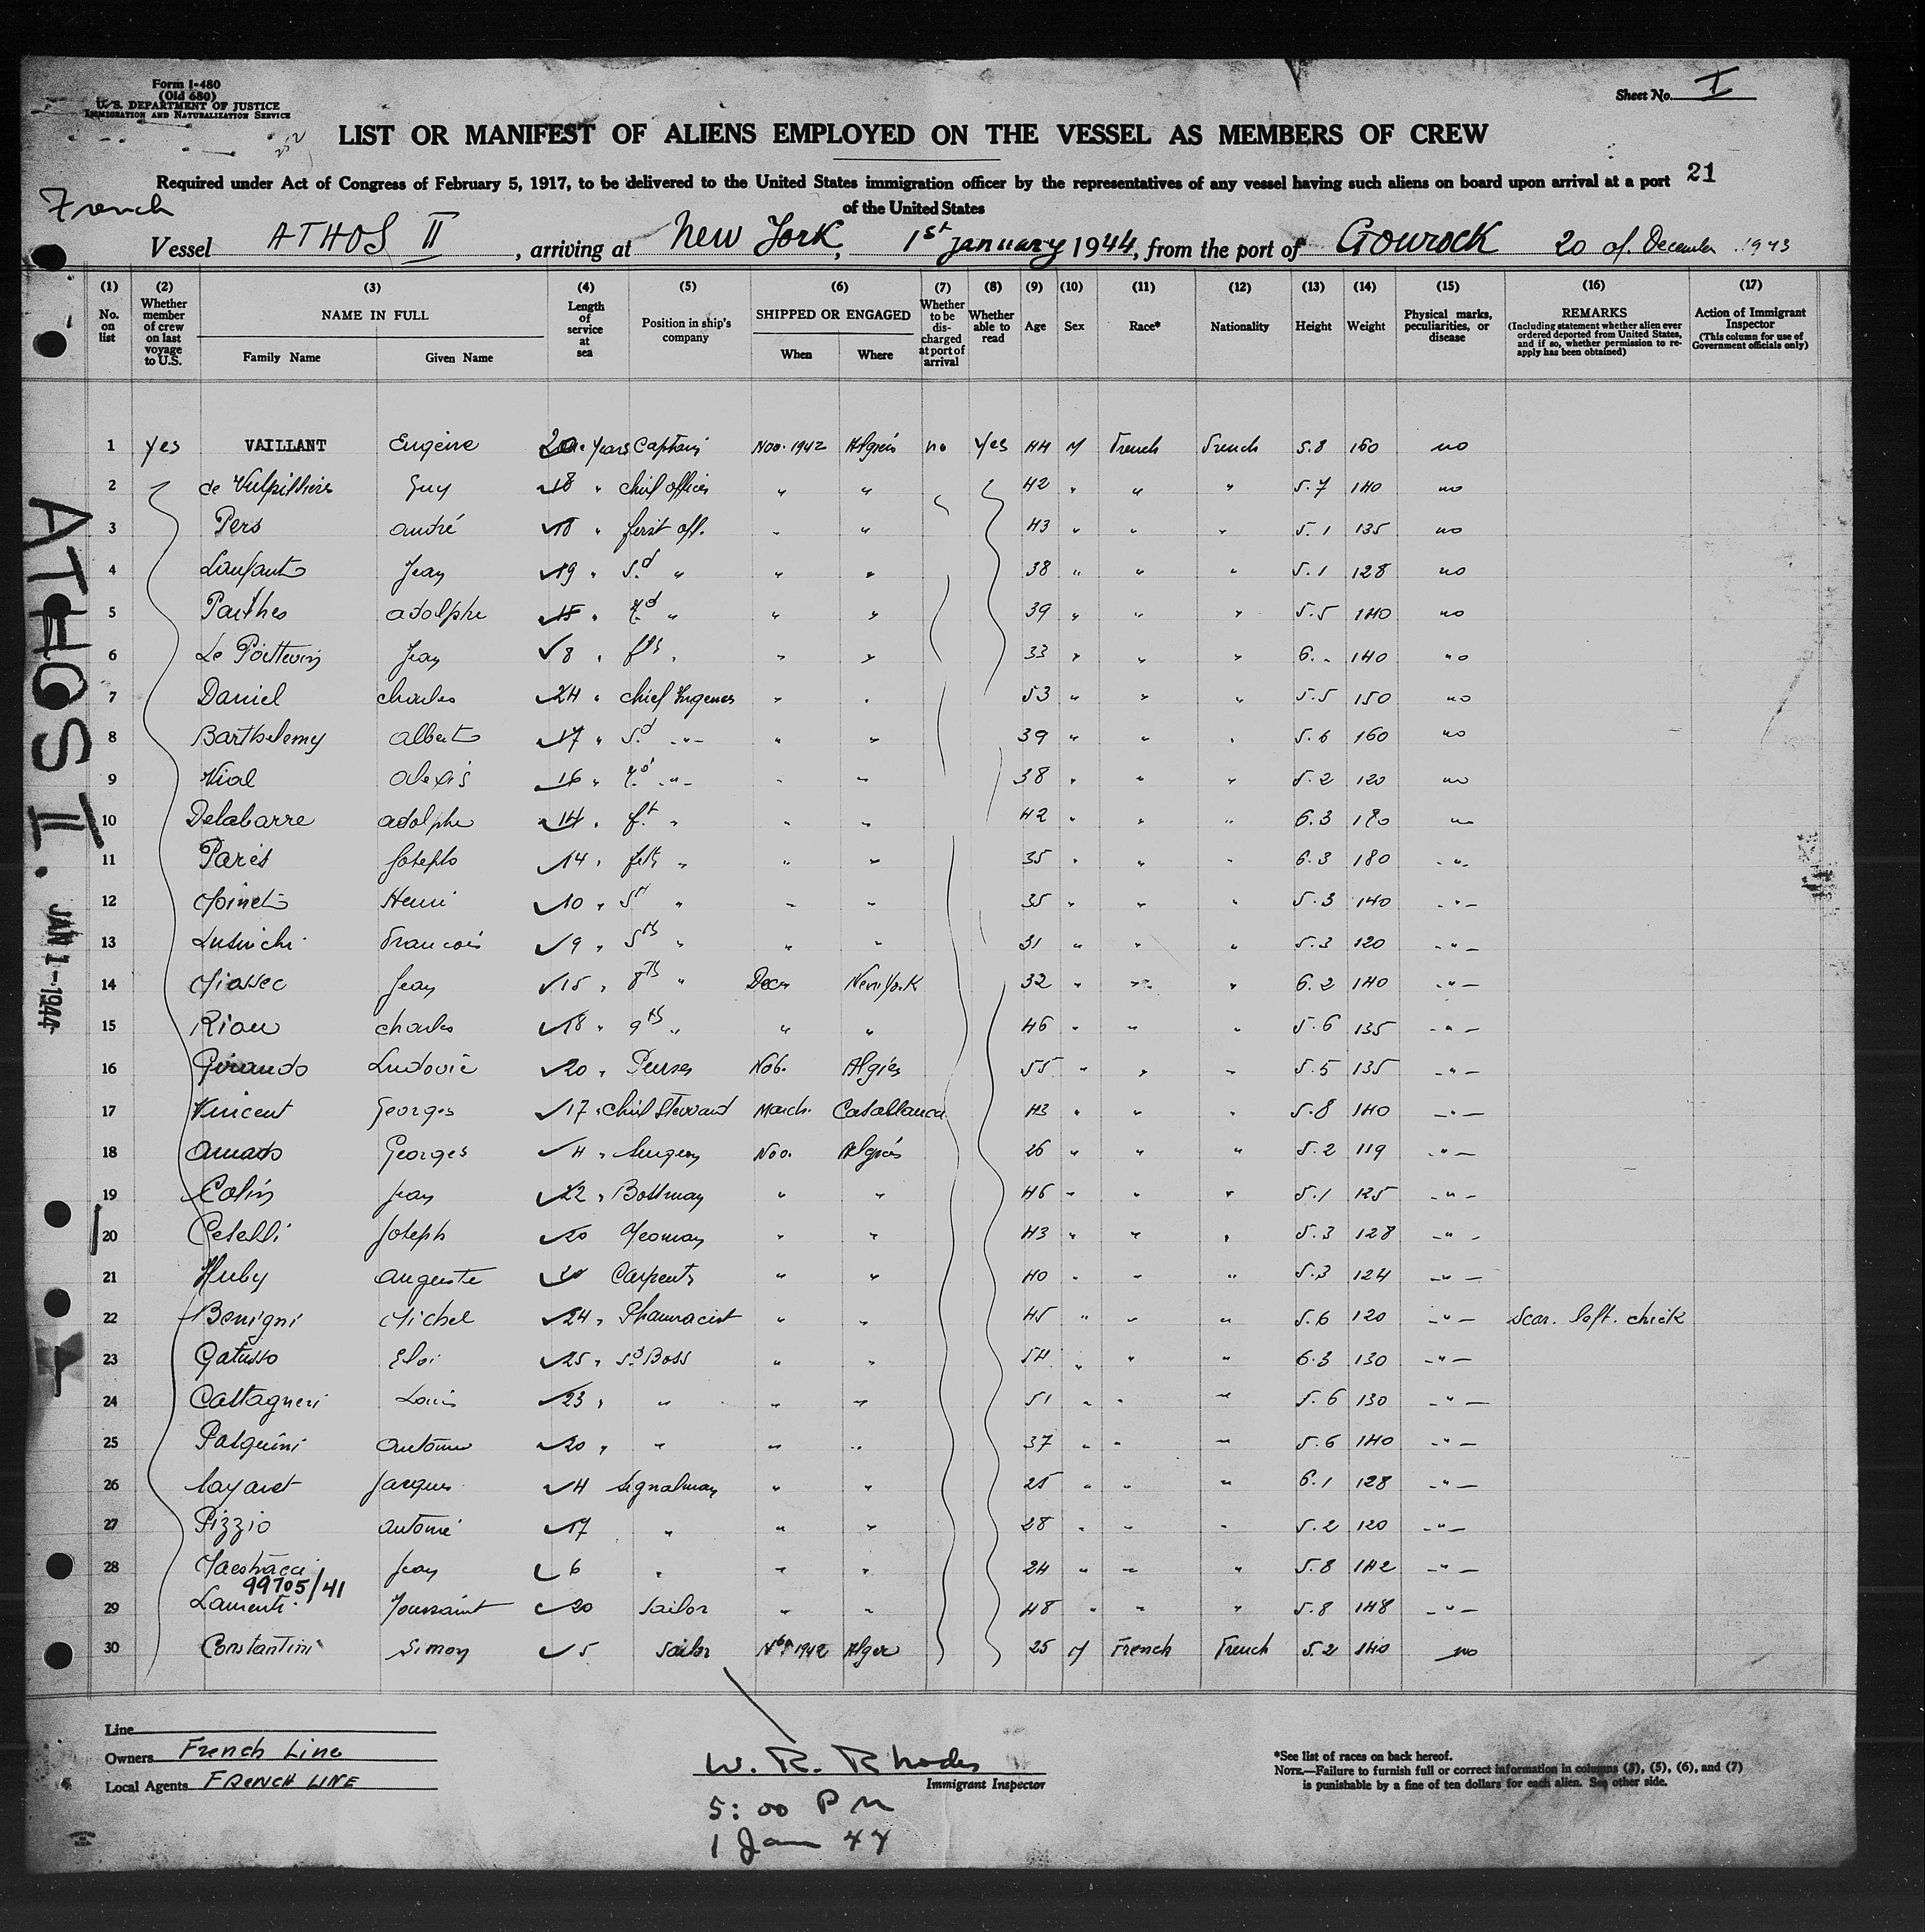 Form I-480
(Old 680)
U. S. DEPARTMENT OF JUSTICE
IMMIGRATION AND NATURALIZATION SERVICE
Sheet No. I
LIST OR MANIFEST OF ALIENS EMPLOYED ON THE VESSEL AS MEMBERS OF CREW
Required under Act of Congress of February 5, 1917, to be delivered to the United States immigration officer by the representatives of any vessel having such aliens on board upon arrival at a port 21
of the United States
French
Vessel ATHOS II, arriving at New York, 1st january 1944, from the port of Gourock 20 of. December 1943
(1) (2) (3) (4) (5) (6) (7) (8) (9) (10) (11) (12) (13) (14) (15) (16) (17)
No. on list
Whether member of crew on last voyage to U.S.
NAME IN FULL
Family Name Given Name
Length of service at sea
Position in ship's company
SHIPPED OR ENGAGED
When Where
Whether to be discharged at port of arrival
Whether able to read
Age
Sex
Race*
Nationality
Height
Weight
Physical marks, peculiarities, or disease
REMARKS
(Including statement whether alien ever ordered deported from United States, and if so, whether permission to reapply has been obtained)
Action of Immigrant Inspector
(This column for use of Government officials only)
1 yes VAILLANT Eugène 20 Years Captain Nov. 1942 no yes 44 M French French 5.8 160 no
2 Guy 18 " chief officer " " 42 " " " 5.7 140 no
3 Pers andré 18 " first off. " " 43 " " " 5.1 135 no
4 Jean 19 " S.d " " " 38 " " " 5.1 128 no
5 adolphe 15 " " " " 39 " " " 5.5 140 no
6 Le Poittevin Jean 8 " " " 33 " " " 6. " 140 no
7 Daniel charles 24 " chief " " 53 " " " 5.5 150 no
8 Barthelemy albert 17 " S.d " " " 39 " " " 5.6 160 no
9 Vial alexis 16 " " " " 38 " " " 5.2 120 no
10 Delabarre adolphe 14 " " " " 42 " " " 6.3 180 no
11 Paris Joseph 14 " " " " 35 " " " 6.3 180 "
12 Henri 10 " " " " 35 " " " 5.3 140 "
13 Francois 9 " " " " 31 " " " 5.3 120 "
14 Jean 15 " 8th " Decr New York 32 " " " 6.2 140 "
15 Riou charles 18 " 9th " " " 46 " " " 5.6 135 "
16 Ludovic 20 " Purser 55 " " " 5.5 135 "
17 Vincent Georges 17 " chief Steward March. Casablanca 43 " " " 5.8 140 "
18 Georges 4 " Surgeon Nov. 26 " " " 5.2 119 "
19 Colin Jean 22 " " " 46 " " " 5.1 125 "
20 Joseph 20 Yeoman " " 43 " " " 5.3 128 "
21 Huby auguste " " 40 " " " 5.3 124 "
22 Benigni Michel 24 " Pharmacist " " 45 " " " 5.6 120 " Scar. left. chick
23 Gatusso Eloi 25 " Sd Boss " " 54 " " " 6.3 130 "
24 Louis 23 " " " " 51 " " " 5.6 130 "
25 20 " " " " 37 " " " 5.6 140 "
26 Jacques 4 Signalman " " 25 " " " 6.1 128 "
27 Pizzio 17 " " " 28 " " " 5.2 120 "
28 Maestracci Jean 6 " " " 24 " " " 5.8 142 "
99705/41
29 Toussaint 20 Sailor " " 48 " " " 5.8 148 "
30 Constantini Simon 5 Sailor 1942 Alger 25 M French French 5.2 140 no
ATHOS II.
JAN 1-1944
Line
Owners French Line
Local Agents FRENCH LINE
W. R. Rhodes
Immigrant Inspector
5:00 PM
1 Jan 44
*See list of races on back hereof.
NOTE.—Failure to furnish full or correct information in columns (3), (5), (6), and (7)
is punishable by a fine of ten dollars for each alien. See other side.